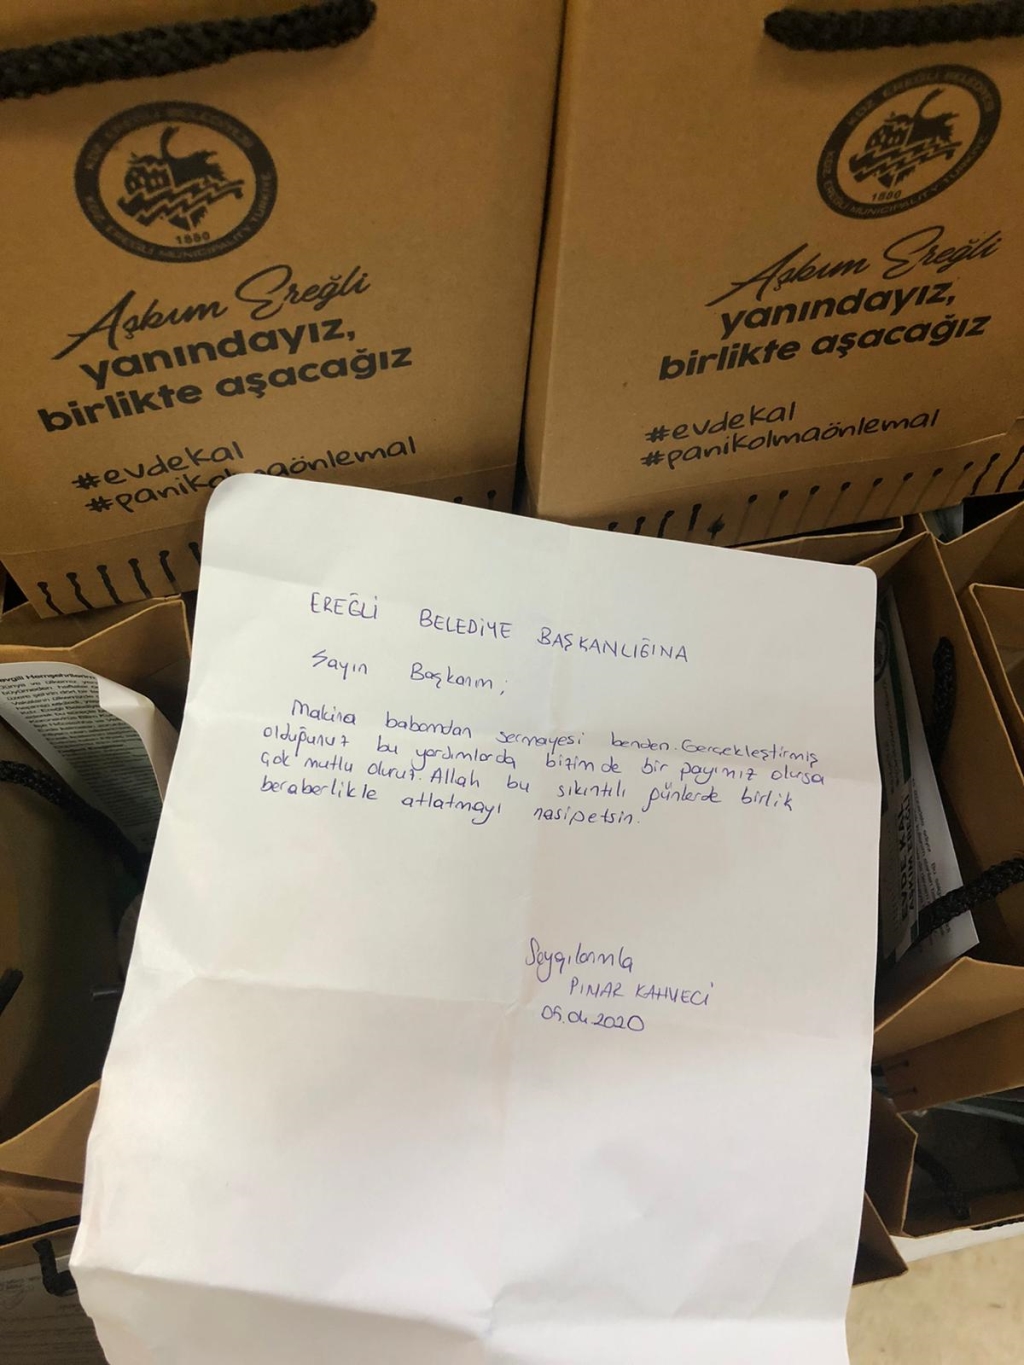 KDZ. EREĞLİ BELEDİYESİ
1880
KDZ. EREĞLİ MUNICIPALITY TURKIYE
Aşkım Ereğli
yanındayız,
birlikte aşacağız
#evdekal
#panikol maönlemal
KDZ. EREĞLİ BELEDİYESİ
1880
KDZ. EREĞLİ MUNICIPALITY TURKIYE
Aşkım Ereğli
yanındayız,
birlikte aşacağız
#evdekal
#panikolmaönlemal
EREĞLİ BELEDİYE BAŞKANLIĞINA
Sayın Başkanım;
Makina babamdan sermayesi benden. Gerçekleştirmiş
olduğunuz bu yardımlarda bizimde bir payımız olursa
çok mutlu oluruz. Allah bu sıkıntılı günlerde birlik
beraberlikle atlatmayı nasipetsin.
Saygılarımla
PINAR KAHVECİ
05.04.2020
EVDE KAL!